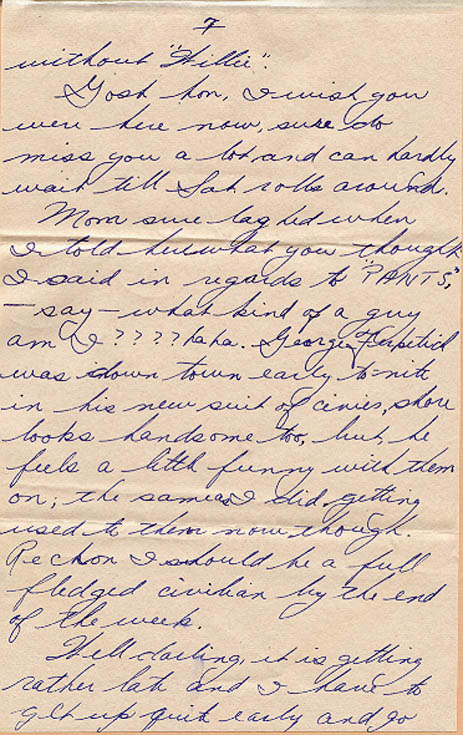 7
without "Willie".
Gosh hon, I wish you
were here now, sure do
miss you a lot and can hardly
wait till Sat rolls around.
Mom sure laghed when
I told her what you thought
I said in regards to "PANTS,"
— say — what kind of a guy
am I ???? haha. George
was down town early to-nite
in his new suit of civies, shore
looks handsome too, but, he
feels a little funny with them
on; the same as I did, getting
used to them now, though.
Reckon I should be a full
fledged civilian by the end
of the week.
Well darling, it is getting
rather late and I have to
get up quite early and go